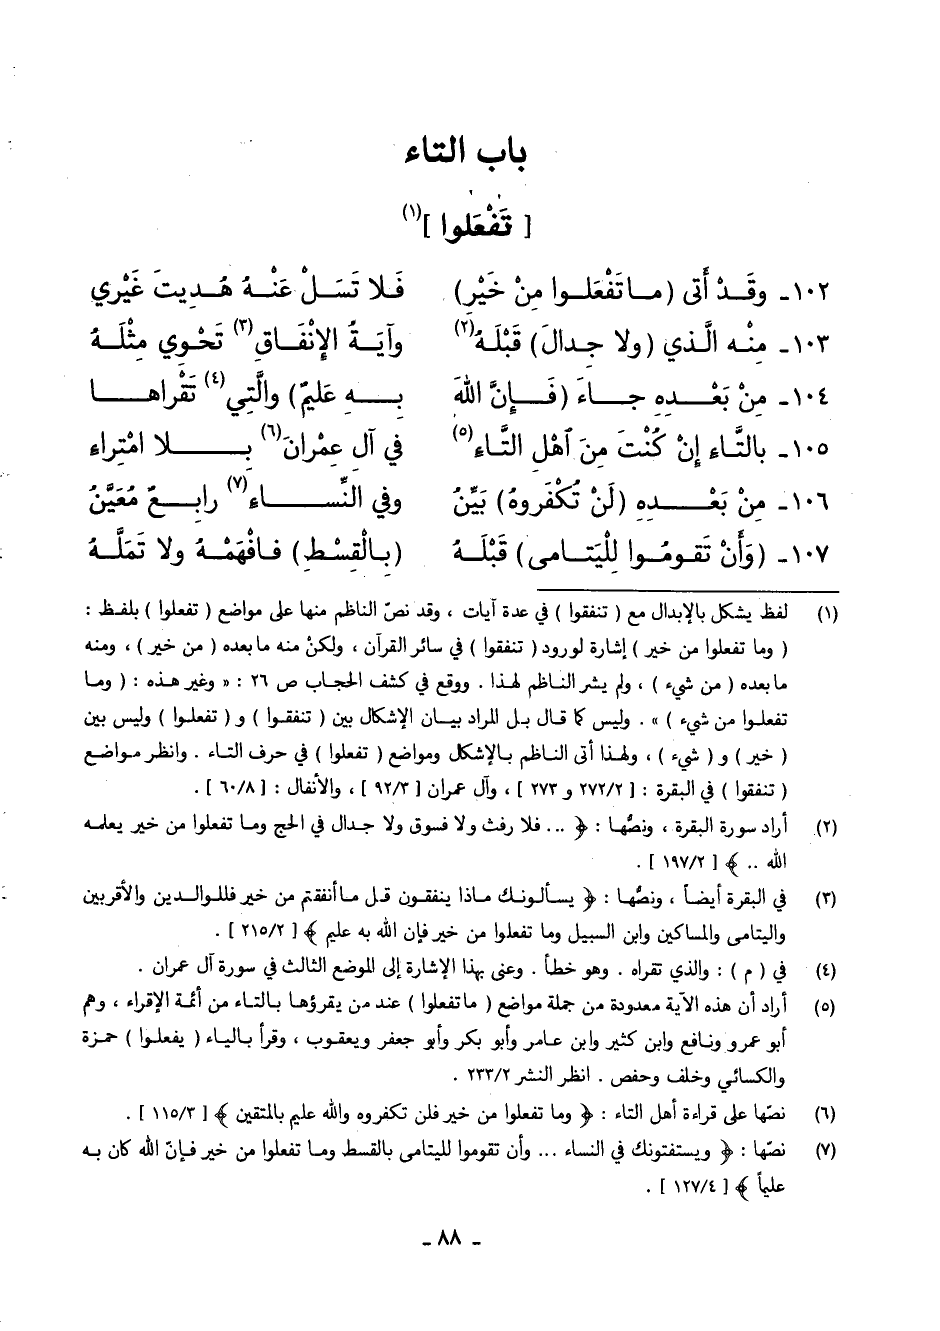 باب التاء
[ تَفْعَلوا ](١)
١٠٢ـ وقَدْ أَتى (ما تَفْعَلوا مِنْ خَيْرِ) فَلا تَسَلْ عَنْهُ هُدِيتَ غَيْري
١٠٣ـ مِنْه الَّذي (ولا جِدالَ) قَبْلَهُ(٢) وآيَةُ الإنْفَاقِ(٣) تَحْوي مِثْلَهُ
١٠٤ـ مِنْ بَعْدِهِ جاءَ (فَإِنَّ اللهَ بِهِ عَليمٌ) والَّتي(٤) تَقْراها
١٠٥ـ بالتَّاءِ إنْ كُنْتَ مِنَ اَهْلِ التَّاءِ(٥) في آلِ عِمْرانَ(٦) بِلا امْتِراءِ
١٠٦ـ مِنْ بَعْدِهِ (لَنْ تُكْفَروهُ) بَيِّنُ وفي النِّساءِ(٧) رابِعٌ مُعَيَّنُ
١٠٧ـ (وَأَنْ تَقومُوا لِلْيَتامى) قَبْلَهُ (بالْقِسْطِ) فافْهَمْهُ ولا تَمَلَّهُ
(١) لفظ يشكل بالإبدال مع ( تنفقوا ) في عدة آيات ، وقد نصّ الناظم منها على مواضع ( تفعلوا ) بلفظ :
( وما تفعلوا من خير ) إشارة لورود ( تنفقوا ) في سائر القرآن ، ولكنْ منه ما بعده ( من خير ) ، ومنه
ما بعده ( من شيء ) ، ولم يشر الناظم لهذا . ووقع في كشف الحجاب ص ٢٦ : « وغير هذه : ( وما
تفعلوا من شيء ) » . وليس كما قال بل المراد بيان الإشكال بين ( تنفقوا ) و ( تفعلوا ) وليس بين
( خير ) و ( شيء ) ، ولهذا أتى الناظم بالإشكال ومواضع ( تفعلوا ) في حرف التاء . وانظر مواضع
( تنفقوا ) في البقرة : [ ٢٧٢/٢ و ٢٧٣ ] ، وآل عمران [ ٩٢/٣ ] ، والأنفال : [ ٦٠/٨ ] .
(٢) أراد سورة البقرة ، ونصُّها : ﴿ ... فلا رفث ولا فسوق ولا جدال في الحج وما تفعلوا من خير يعلمه
الله .. ﴾ [ ١٩٧/٢ ] .
(٣) في البقرة أيضاً ، ونصُّها : ﴿ يسألونك ماذا ينفقون قل ما أنفقتم من خير فللوالدين والأقربين
واليتامى والمساكين وابن السبيل وما تفعلوا من خير فإن الله به عليم ﴾ [ ٢١٥/٢ ] .
(٤) في ( م ) : والذي تقراه . وهو خطأ . وعنى بهذا الإشارة إلى الموضع الثالث في سورة آل عمران .
(٥) أراد أن هذه الآية معدودة من جملة مواضع ( ما تفعلوا ) عند من يقرؤها بالتاء من أئمة الإقراء ، وهم
أبو عمرو ونافع وابن كثير وابن عامر وأبو بكر وأبو جعفر ويعقوب ، وقرأ بالياء ( يفعلوا ) حمزة
والكسائي وخلف وحفص . انظر النشر ٢٣٣/٢ .
(٦) نصّها على قراءة أهل التاء : ﴿ وما تفعلوا من خير فلن تكفروه والله عليم بالمتقين ﴾ [ ١١٥/٣ ] .
(٧) نصّها : ﴿ ويستفتونك في النساء ... وأن تقوموا لليتامى بالقسط وما تفعلوا من خير فإنّ الله كان به
عليماً ﴾ [ ١٢٧/٤ ] .
ـ ٨٨ ـ